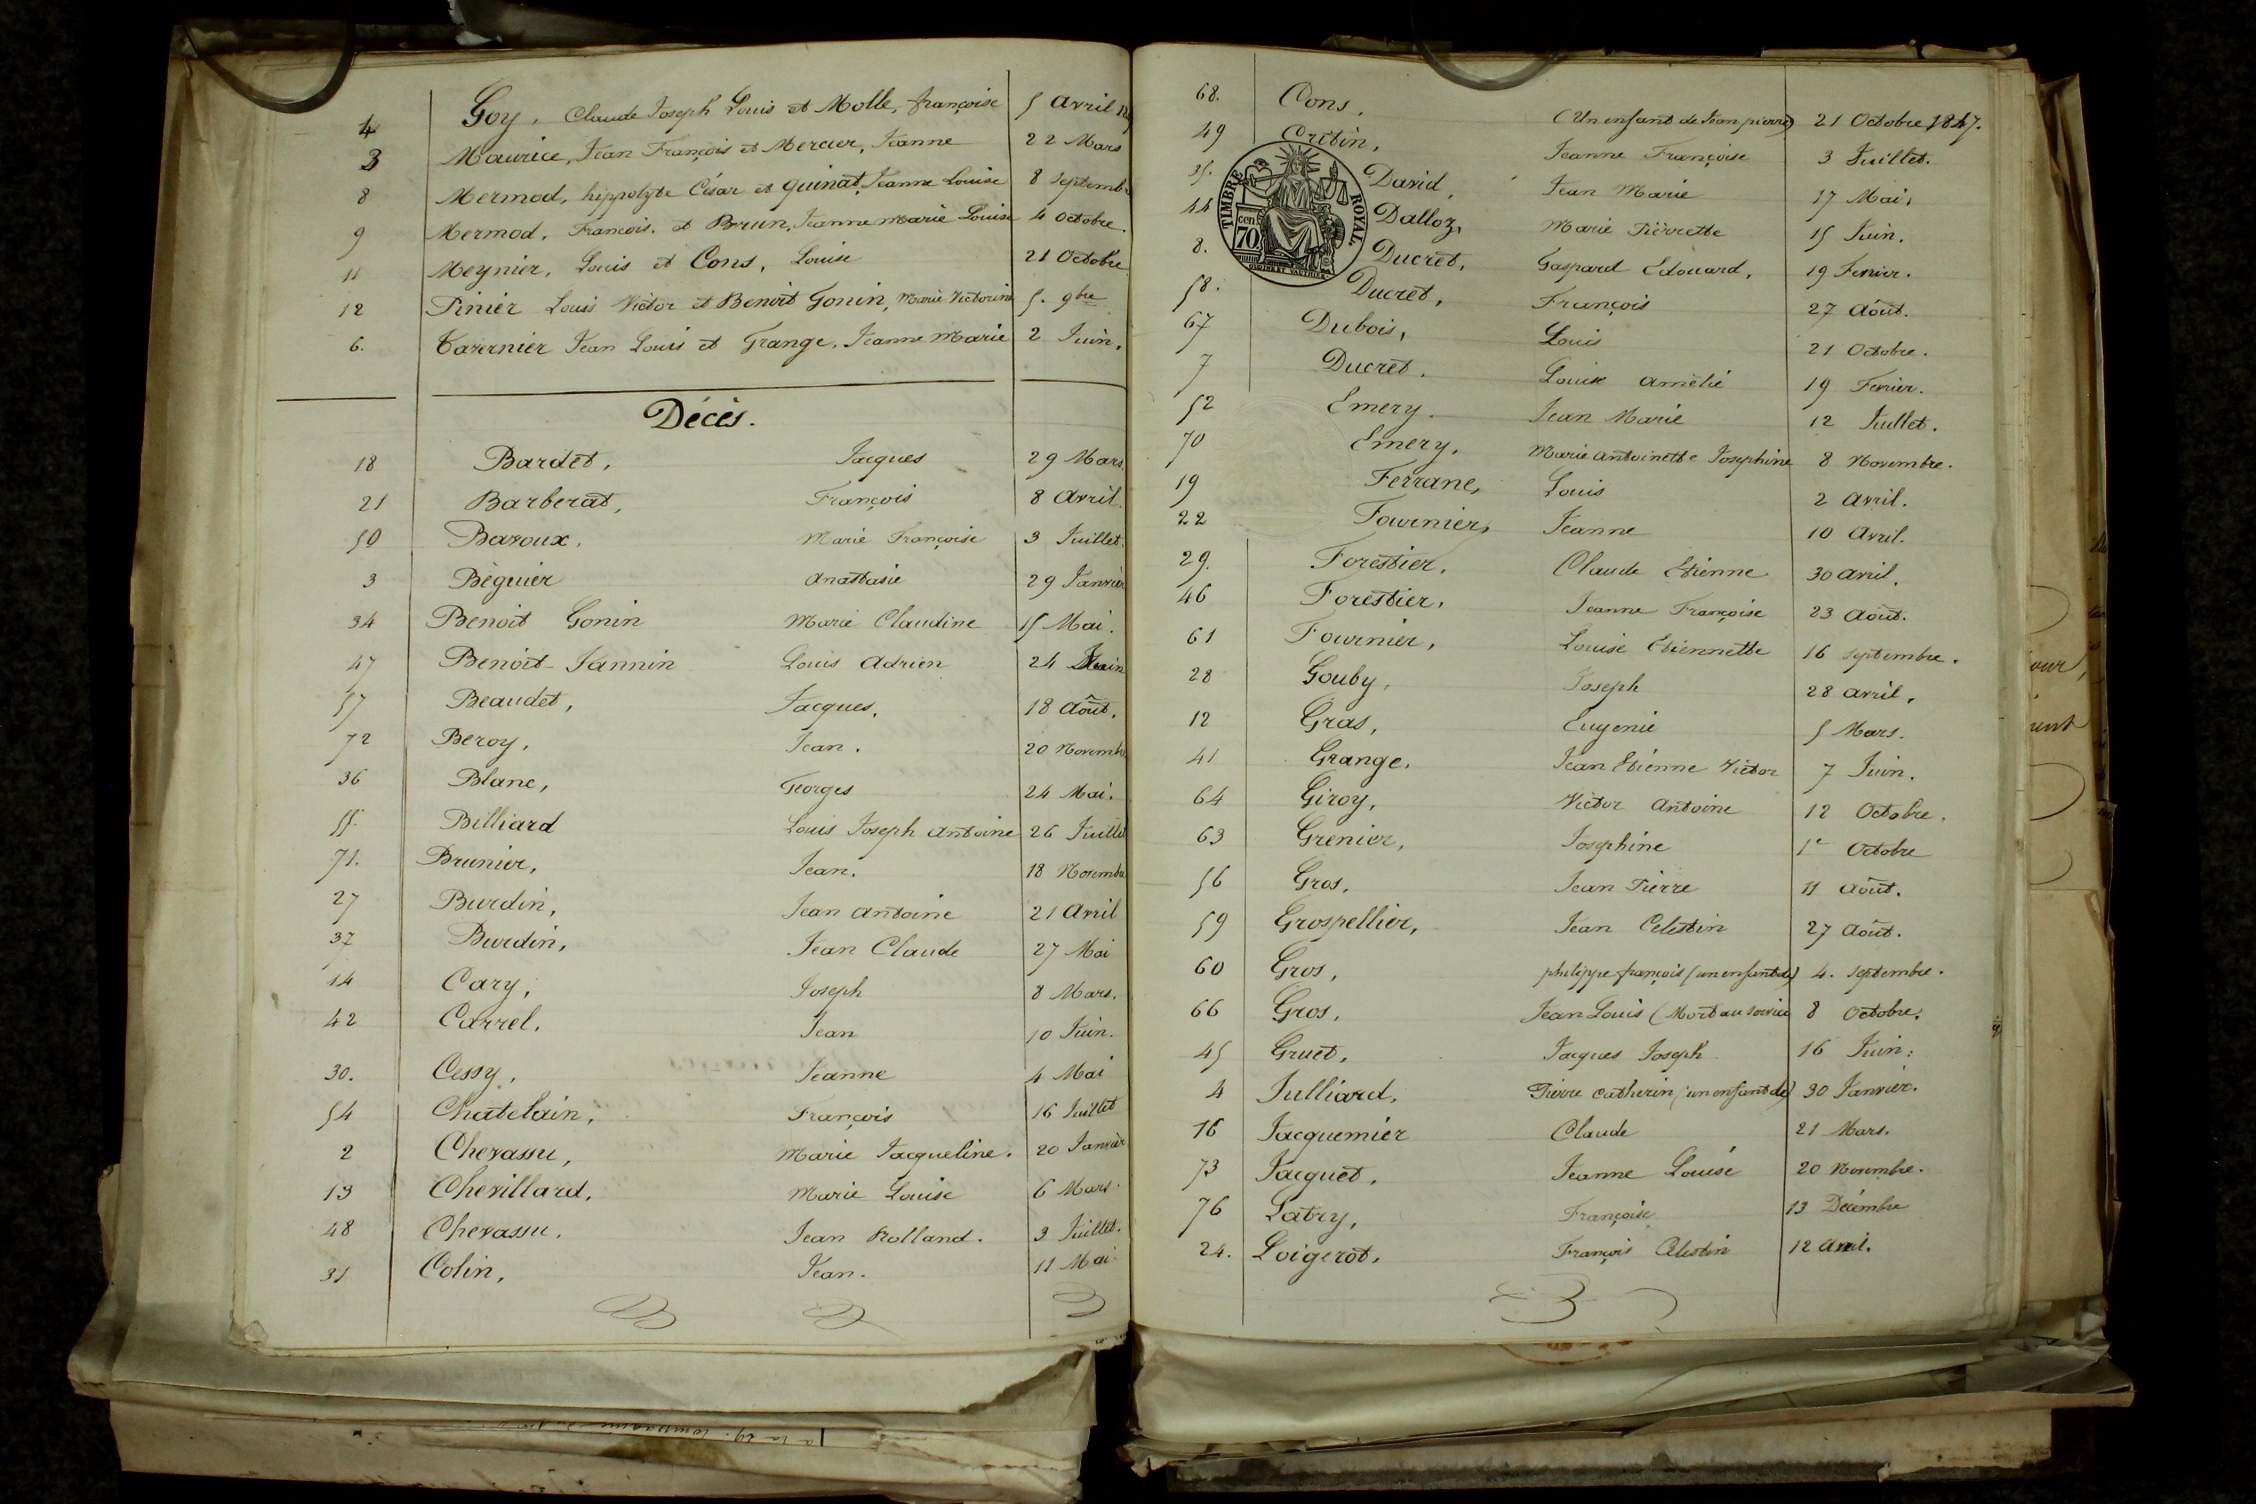 4 Goy, Claude Joseph Louis et Molle, françoise 5 avril
3 Maurice, Jean François et Mercier, Jeanne 22 Mars
8 Mermod, hippolyte César et quinat, Jeanne Louise 8 Septemb
9 Mermod, François, et Brun, Jeanne marie Louise 4 octobre.
11 Meynier, Louis et Cons, Louise 21 Octobre
12 Pinier Louis Victor et Benoit Gonin, Marie Victorine 5. 9bre
6. Tavernier Jean Louis et Grange, Jeanne Marie 2 Juin.
Décès.
18 Bardet, Jacques 29 Mars.
21 Barberat, François 8 avril.
50 Baroux, Marie Françoise 3 Juillet.
3 Béguier anastasie 29 Janvier
34 Benoit Gonin Marie Claudine 15 Mai.
47 Benoit-Jannin Louis adrien 24 Juin
57 Beaudet, Jacques, 18 août.
72 Beroy, Jean. 20 Novembre
36 Blanc, Georges 24 Mai.
55. Billiard Louis Joseph antoine 26 Juillet
71. Brunier, Jean. 18 Novembre
27 Burdin, Jean antoine 21 avril
37 Burdin, Jean Claude 27 Mai
14 Cary, Joseph 8 Mars.
42 Carrel, Jean 10 Juin.
30. Cessy, Jeanne 4 Mai
54 Chatelain, François 16 Juillet
2 Chevassu, Marie Jacqueline. 20 Janvier
13 Chevillard, Marie Louise 6 Mars.
48 Chevassu, Jean Rolland. 3 Juillet.
31 Colin, Jean. 11 Mai.
68. Cons, (Un enfant de Jean pierre) 21 Octobre 1847.
49 Cretin, Jeanne Françoise 3 Juillet.
35. David, Jean Marie 17 Mai.
44 Dalloz, Marie Pierrette 15 Juin.
8. Ducret, Gaspard Edouard, 19 Fevrier.
TIMBRE ROYAL
cen. 70.
58. Ducret, François 27 août.
67 Dubois, Louis 21 Octobre.
7 Ducret. Louise amélie 19 Fevrier.
52 Emery. Jean Marie 12 Juillet.
70 Emery, Marie antoinette Josephine 8 Novembre.
19 Ferrane, Louis 2 avril.
22 Fournier, Jeanne 10 avril.
29. Forestier, Claude Etienne 30 avril.
46 Forestier, Jeanne Françoise 23 août.
61 Fournier, Louise Etiennette 16 septembre.
28 Gouby, Joseph 28 avril.
12 Gras, Eugenie 5 Mars.
41 Grange, Jean Etienne Victor 7 Juin.
64 Giroy, Victor antoine 12 Octobre.
63 Grenier, Josephine 1er Octobre
56 Gros, Jean Pierre 11 août.
59 Grospellier, Jean Celestin 27 août.
60 Gros, philippe françois (un enfant de) 4. septembre.
66 Gros, Jean Louis (Mort au service 8 Octobre.
45 Gruet, Jacques Joseph 16 Juin.
4 Julliard, Pierre catherin (un enfant de) 30 Janvier.
16 Jacquemier Claude 21 Mars.
73 Jacquet, Jeanne Louise 20 Novembre.
76 Latry, Françoise 13 Décembre
24. Loigerot, François Celestin 12 avril.